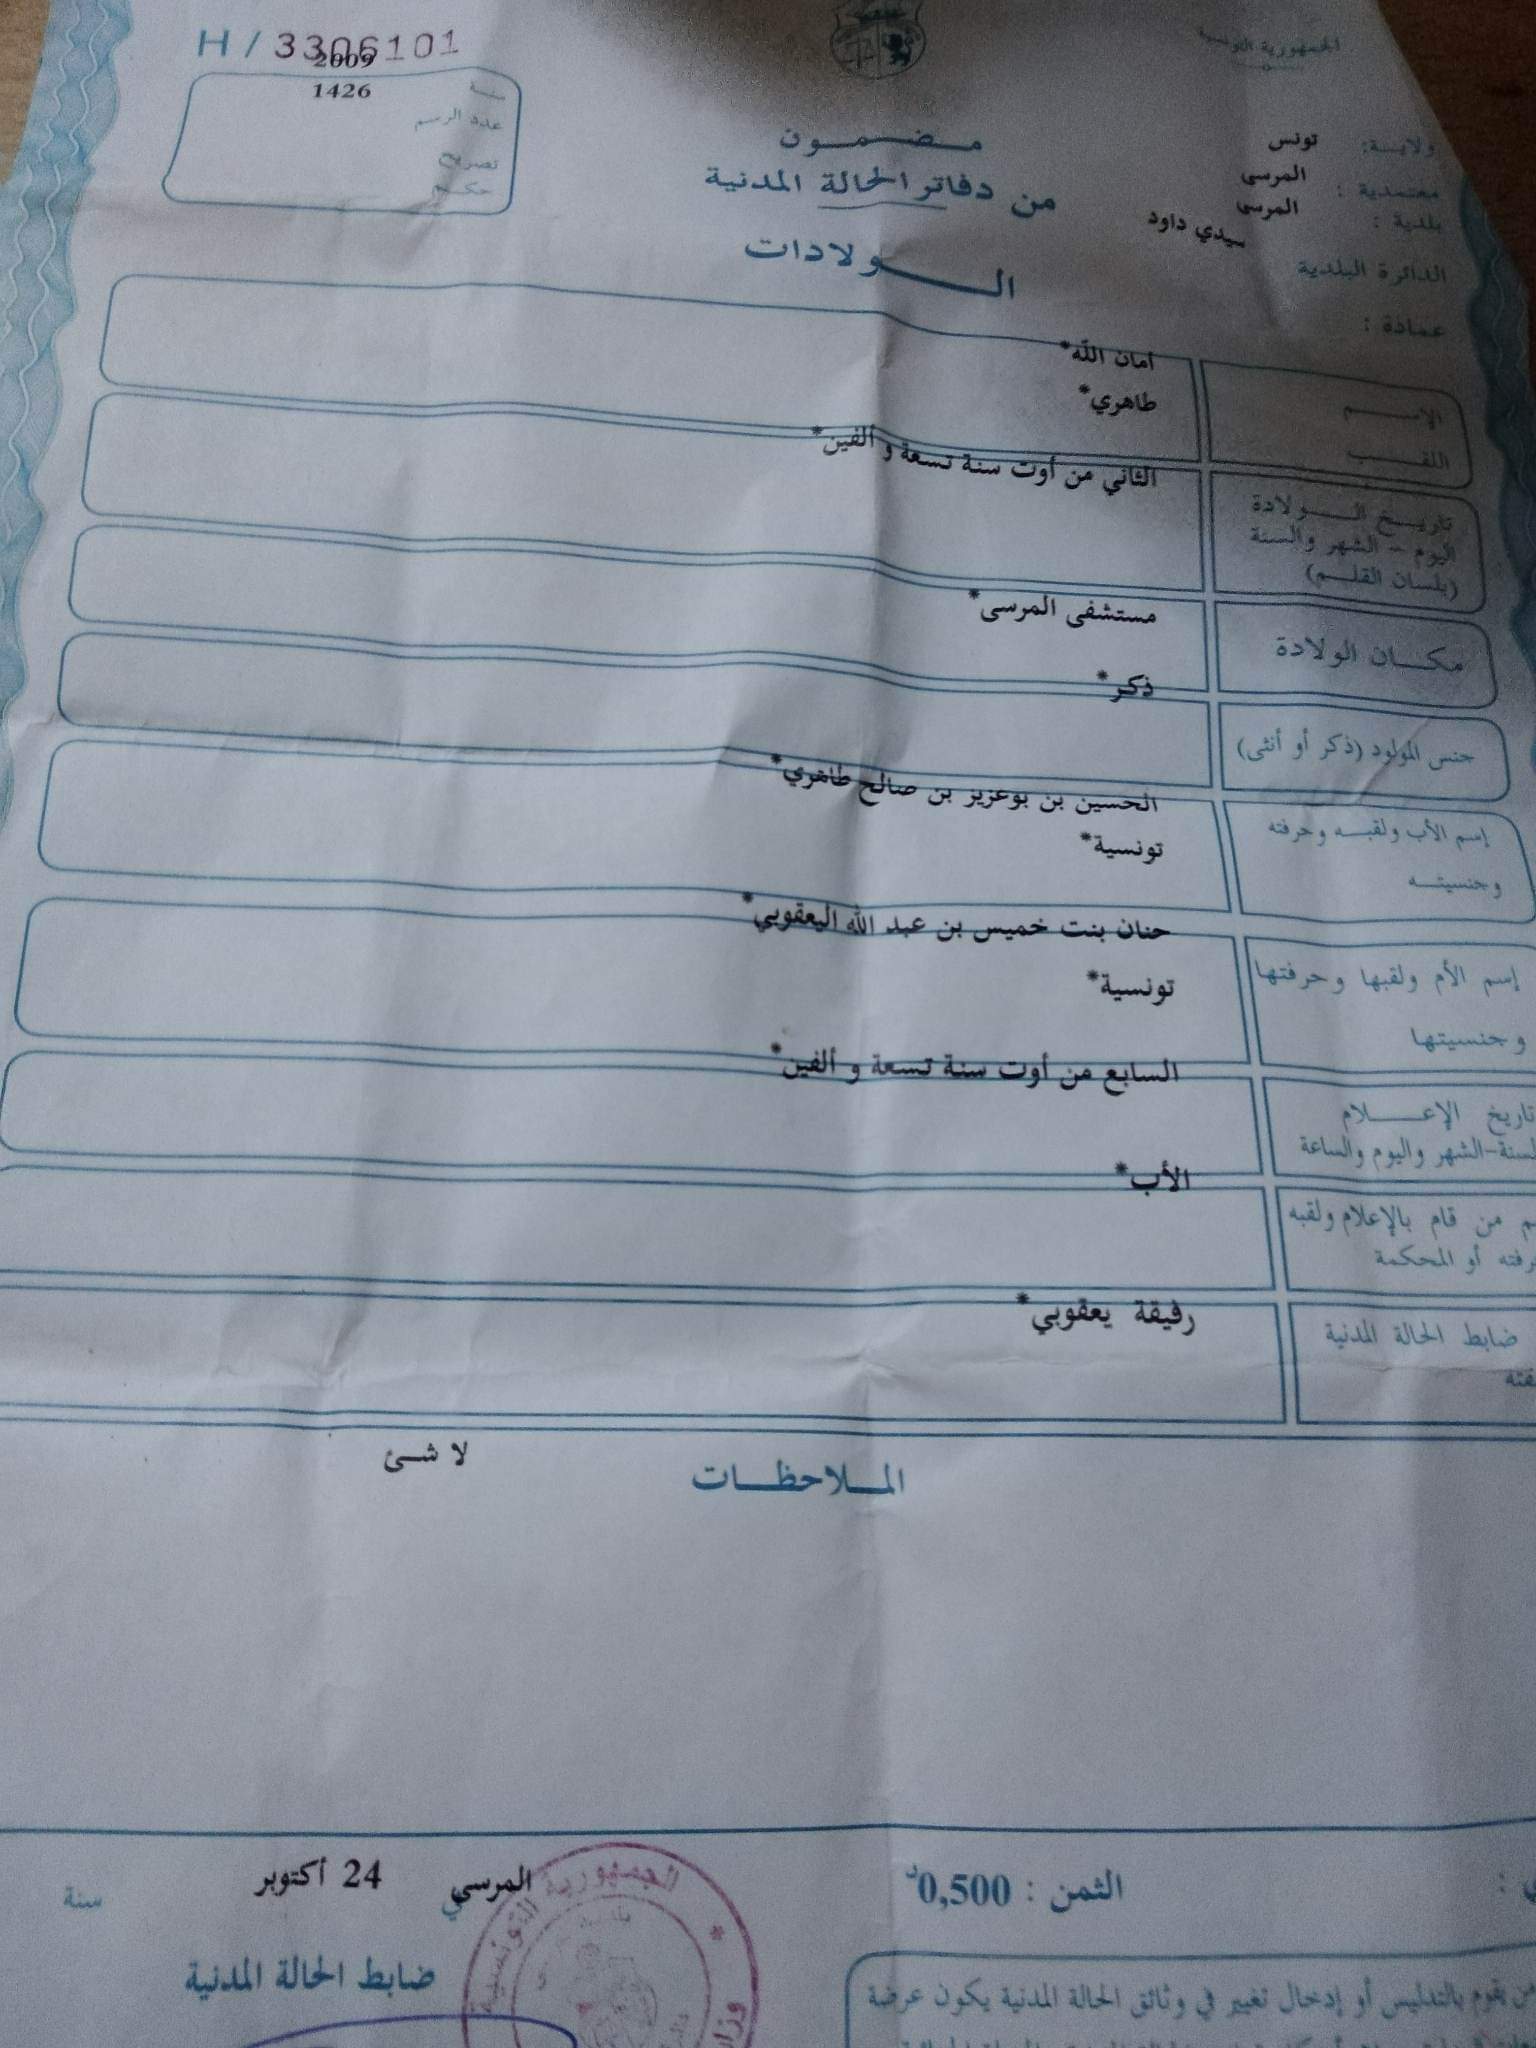 الجمهورية التونسية
H / 3306101
2009
سنة
1426
عدد الرسم
تصريح
حكم
ولاية: تونس
معتمدية : المرسى
بلدية : المرسى
الدائرة البلدية سيدي داود
عمادة :
مضمون
من دفاتر الحالة المدنية
الولادات
الإسم
أمان الله*
اللقب
طاهري*
تاريخ الولادة
اليوم - الشهر والسنة
(بلسان القلم)
الثاني من أوت سنة تسعة و ألفين*
مكان الولادة
مستشفى المرسى*
جنس المولود (ذكر أو أنثى)
ذكر*
إسم الأب ولقبه وحرفته
وجنسيته
الحسين بن بوعزيز بن صالح طاهري*
تونسية*
إسم الأم ولقبها وحرفتها
وجنسيتها
حنان بنت خميس بن عبد الله اليعقوبي*
تونسية*
تاريخ الإعلام
السنة-الشهر واليوم والساعة
السابع من أوت سنة تسعة و ألفين*
من قام بالإعلام ولقبه
أو المحكمة
الأب*
ضابط الحالة المدنية
رفيقة يعقوبي*
الملاحظات
لا شئ
الثمن : 0,500د
المرسي 24 أكتوبر سنة
ضابط الحالة المدنية
الجمهورية التونسية
من يقوم بالتدليس أو إدخال تغيير في وثائق الحالة المدنية يكون عرضة